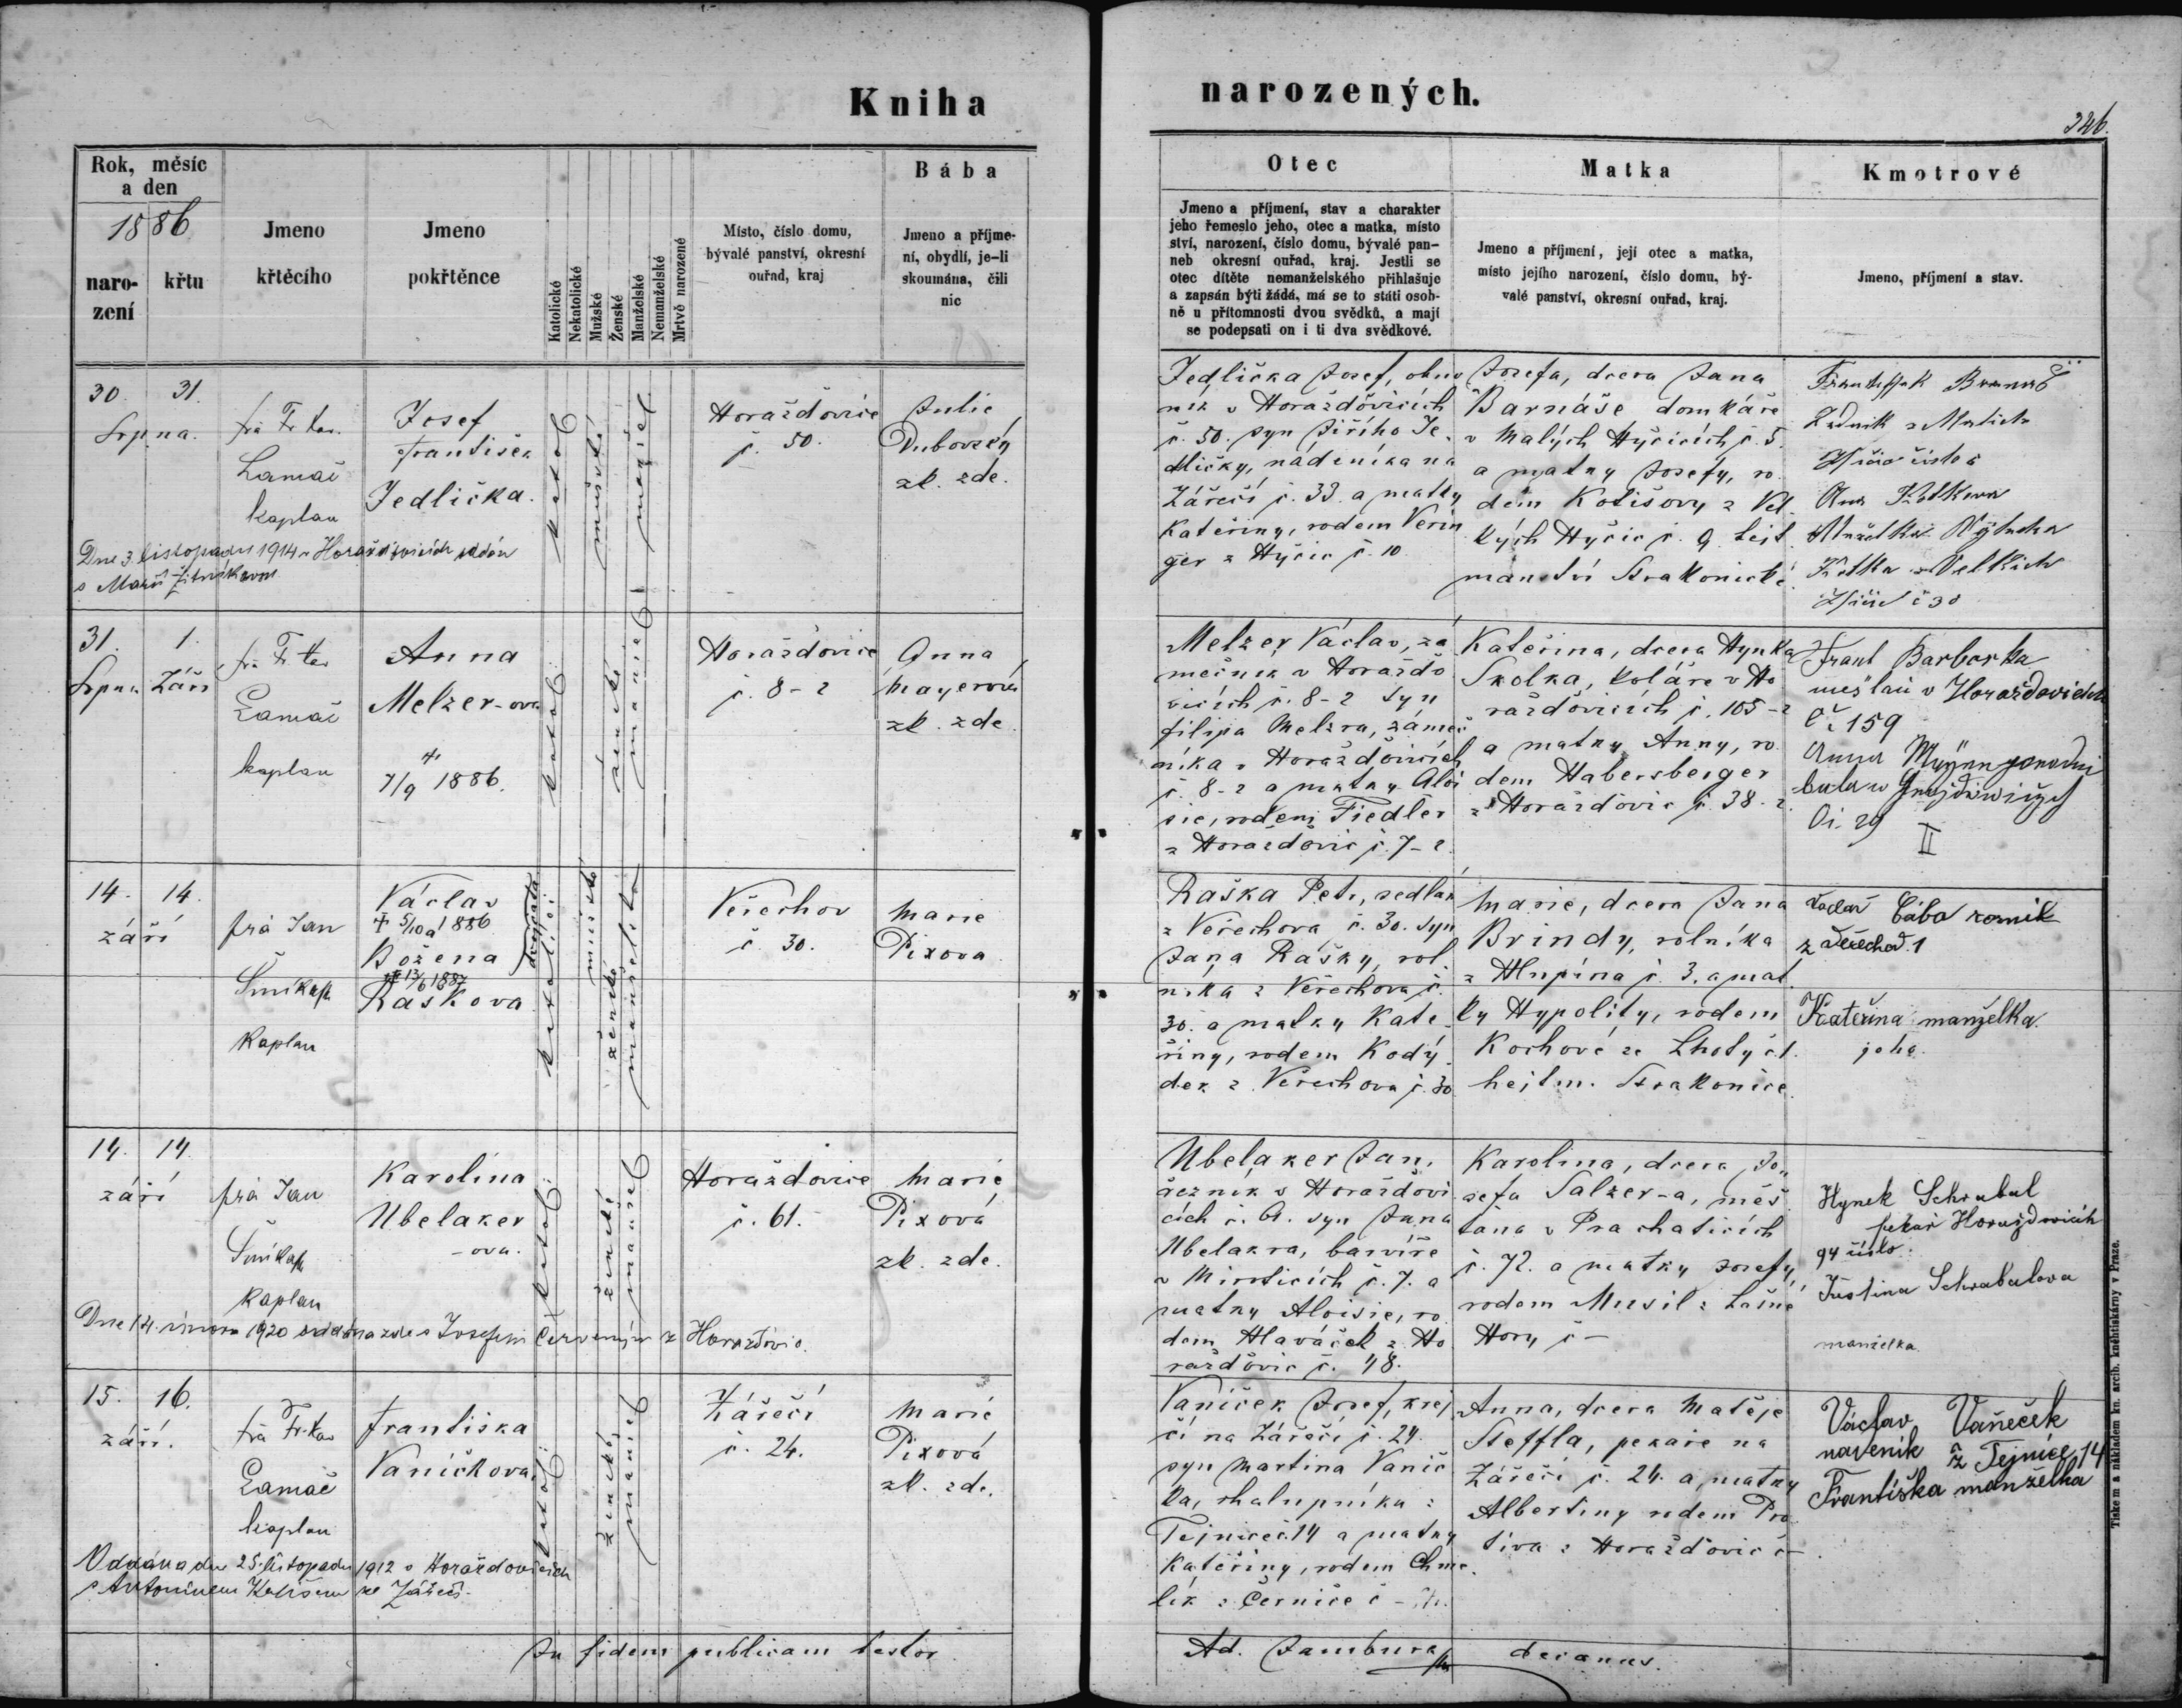 Kniha
narozených.
Rok, měsíc
a den
1886
naro-
zení
křtu
Jmeno
křtěcího
Jmeno
pokřtěnce
Katolické
Nekatolické
Mužské
Ženské
Manželské
Nemanželské
Mrtvě narozené
Místo, číslo domu,
bývalé panství, okresní
ouřad, kraj
Bába
Jmeno a příjme-
ní, obydlí, je-li
skoumána, čili
nic
Otec
Jmeno a příjmení, stav a charakter
jeho řemeslo jeho, otec a matka, místo
ství, narození, číslo domu, bývalé pan-
neb okresní ouřad, kraj. Jestli se
otec dítěte nemanželského přihlašuje
a zapsán býti žádá, má se to státi osob-
ně u přítomnosti dvou svědků, a mají
se podepsati on i ti dva svědkové.
Matka
Jmeno a příjmení, její otec a matka,
místo jejího narození, číslo domu, bý-
valé panství, okresní ouřad, kraj.
Kmotrové
Jmeno, příjmení a stav.
30. 31.
Srpna.
Lamač
kaplan
Josef
František
Jedlička.
katol
mužské
manžel
Horažďovice
č. 50.
Julie
zk. zde.
Jedlička Josef,
v Horažďovicích
č. 50. syn Jiřího Je-
dličky, nádeníka na
Zářečí č. 33. a matky
Kateřiny, rodem Verin
ger z Hyčic č. 10
Josefa, dcera Jana
Barnáše domkáře
v Malých Hyčicích č. 5.
a matky Josefy, ro
dem Kotišovy z Vel
kých Hyčic č. 9. hejt
manství Strakonické
Dne 3. listopadu 1914 v Horažďovicích oddán
s Marií
31. 1.
Srpna Září
Lamač
kaplan
Anna
Melzer-ova
7/9 1886.
katol
ženské
manžel
Horažďovice
č. 8-2
Anna
Mayerová
zk. zde
Melzer Václav, zá
mečník v Horažďo
vicích č. 8-2 syn
filipa Melzra, zámeč
níka v Horažďovicích
č. 8-2 a matky Aloi
sie, rodem Fiedler
z Horažďovic č. 7-2.
Kateřina, dcera Hynka
Skolka, koláře v Ho
ražďovicích č. 105-2
a matky Anny, ro
dem Habersberger
z Horažďovic č. 38-2.
Frant Barborka
mešťan v Horažďovicích
č 159
Anna
29
II
14. 14.
září
Jan
kaplan
Václav
5/10 1886
Božena
13/6 1887
Rašková
dvojčata
mužské
ženské
manželské
Veřechov
č. 30.
Marie
Pixova
Raška Petr, sedlák
z Veřechova č. 30. syn
Jana Rašky, rol
níka z Veřechova č.
30. a matky Kate
řiny, rodem Kodý
dek z Veřechova č. 30
Marie, dcera Jana
Brindy, rolníka
z Hlupína č. 3. a mat
ky Hypolity, rodem
Kochové ze Lhoty č. 1.
hejtm. Strakonice.
Václav Cába
z Veřechov. 1
Kateřina manželka
jeho.
14. 14.
září
Jan
kaplan
Karolína
Ubelaker
-ova.
katol
ženské
manžel
Horažďovice
č. 61.
Marie
Pixová
zk. zde.
Ubelaker Jan,
řezník v Horažďovi
cích č. 61. syn Jana
Ubelakra, barvíře
v Miroticích č. 7. a
matky Aloisie, ro
dem Hlaváček z Ho
ražďovic č. 48.
Karolina, dcera Jo
sefa Salzer-a, měš
ťana v Prachaticích
č. 72. a matky Josefy,
rodem Musil z Lašné
Hory č -
Hynek Schrabal
pekař Horažďovicích
94 číslo.
Justina Schrabalova
manželka
Dne 14. února 1920 oddána zde s Josefem Červeným z Horažďovic.
15. 16.
září.
Lamač
kaplan
Františka
Vaníčkova
katol
ženské
manžel
Zářečí
č. 24.
Marie
Pixová
zk. zde.
Vaníček Josef, krej
čí na Zářečí č. 24.
syn Martina Vaníč
ka, chalupníka z
Tejnice č. 14 a matky
Kateřiny, rodem Chme
lík z Černíče č -
Anna, dcera Matěje
Steffla, pekaře na
Zářečí č. 24. a matky
Albertiny rodem Pro
tiva z Horažďovic č -
Václav Vaňeček
z Tejnice 14
Františka manželka
Oddána dne 25. listopadu 1912 v Horažďovicích
s Antonínem ze Zářečí.
In fidem publicam testor
Ad. Jambura decanus.
Tiskem a nákladem kn. arcib. knihtiskárny v Praze.